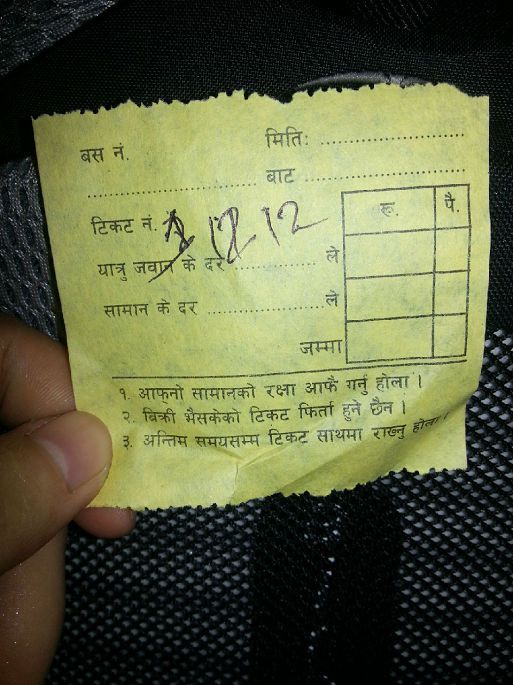 बस नं. मिति:
बाट
टिकट नं. 1212 रू. पै.
यात्रु जवान के दर ले
सामान के दर ले
जम्मा
१. आफ्नो सामानको रक्षा आफै गर्नु होला ।
२. बिक्री भैसकेको टिकट फिर्ता हुने छैन ।
३. अन्तिम समयसम्म टिकट साथमा राख्नु होला ।